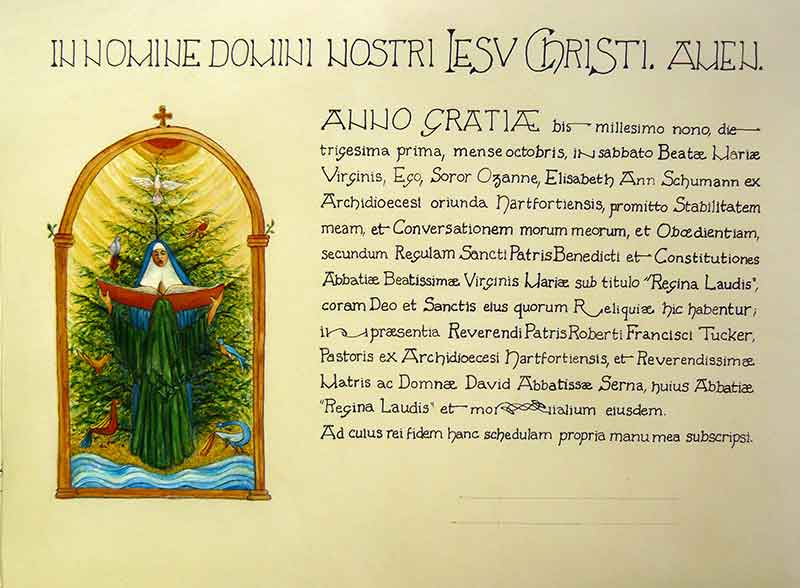 IN NOMINE DOMINI NOSTRI IESV CHRISTI. AMEN.
ANNO GRATIÆ bis millesimo nono, die
trigesima prima, mense octobris, in sabbato Beatæ Mariæ
Virginis, Ego, Soror Ozanne, Elisabeth Ann Schumann ex
Archidioecesi oriunda Hartfortiensis, promitto Stabilitatem
meam, et Conversationem morum meorum, et Obœdientiam,
secundum Regulam Sancti Patris Benedicti et Constitutiones
Abbatiæ Beatissimæ Virginis Mariæ sub titulo "Regina Laudis",
coram Deo et Sanctis eius quorum Reliquiæ hic habentur;
in præsentia Reverendi Patris Roberti Francisci Tucker,
Pastoris ex Archidioecesi Hartfortiensis, et Reverendissimæ
Matris ac Domnæ David Abbatissæ Serna, huius Abbatiæ
"Regina Laudis" et monialium eiusdem.
Ad cuius rei fidem hanc schedulam propria manu mea subscripsi.